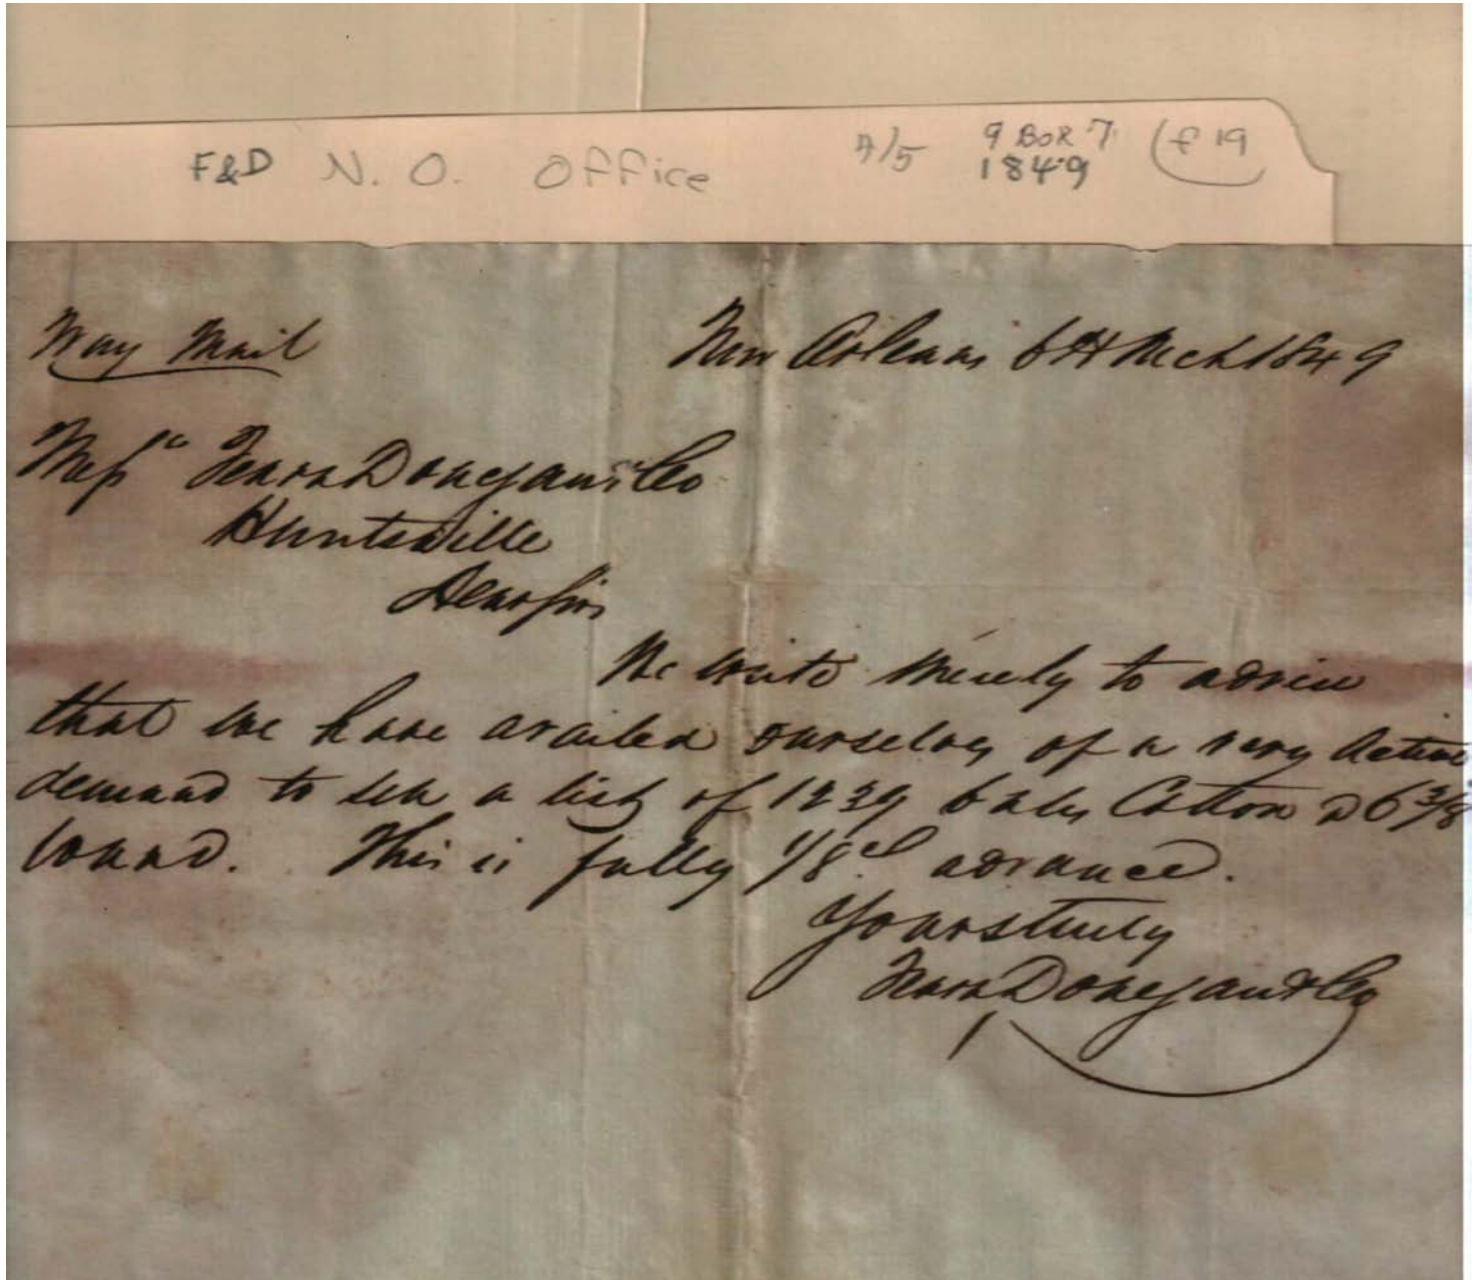 F&D N. O. Office 7/5 9 BOR 7 (f 19
1849
Way Mail New Orleans 6th Mch 1849
Messrs Fearn Donegan & Co
Huntsville
Dear Sirs
We write merely to advise
that we have availed ourselves of a very active
demand to sell a list of 1239 bales Cotton @ 6 3/8
round. This is fully 1/8 ct advance.
Yours truly
Fearn Donegan & Co